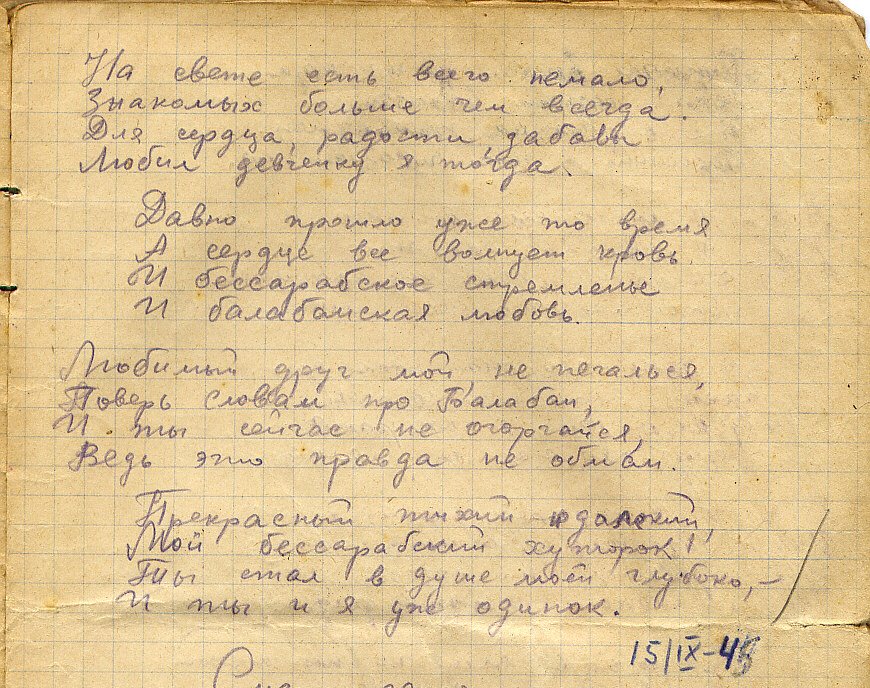 На свете есть всего немало,
Знакомых больше чем всегда.
Для сердца, радости, забавы
Любил девченку я тогда.
Давно прошло уже то время
А сердце все волнует кровь
И бессарабское стремленье
И балабанская любовь.
Любимый друг мой, не печалься,
Поверь словам про Балабан,
И ты сейчас не огорчайся,
Ведь это правда не обман.
Прекрасный тихий и далекий,
Мой бессарабский хуторок!
Ты стал в душе моей глубоко, –
И ты и я уже одинок.
15/IX-45